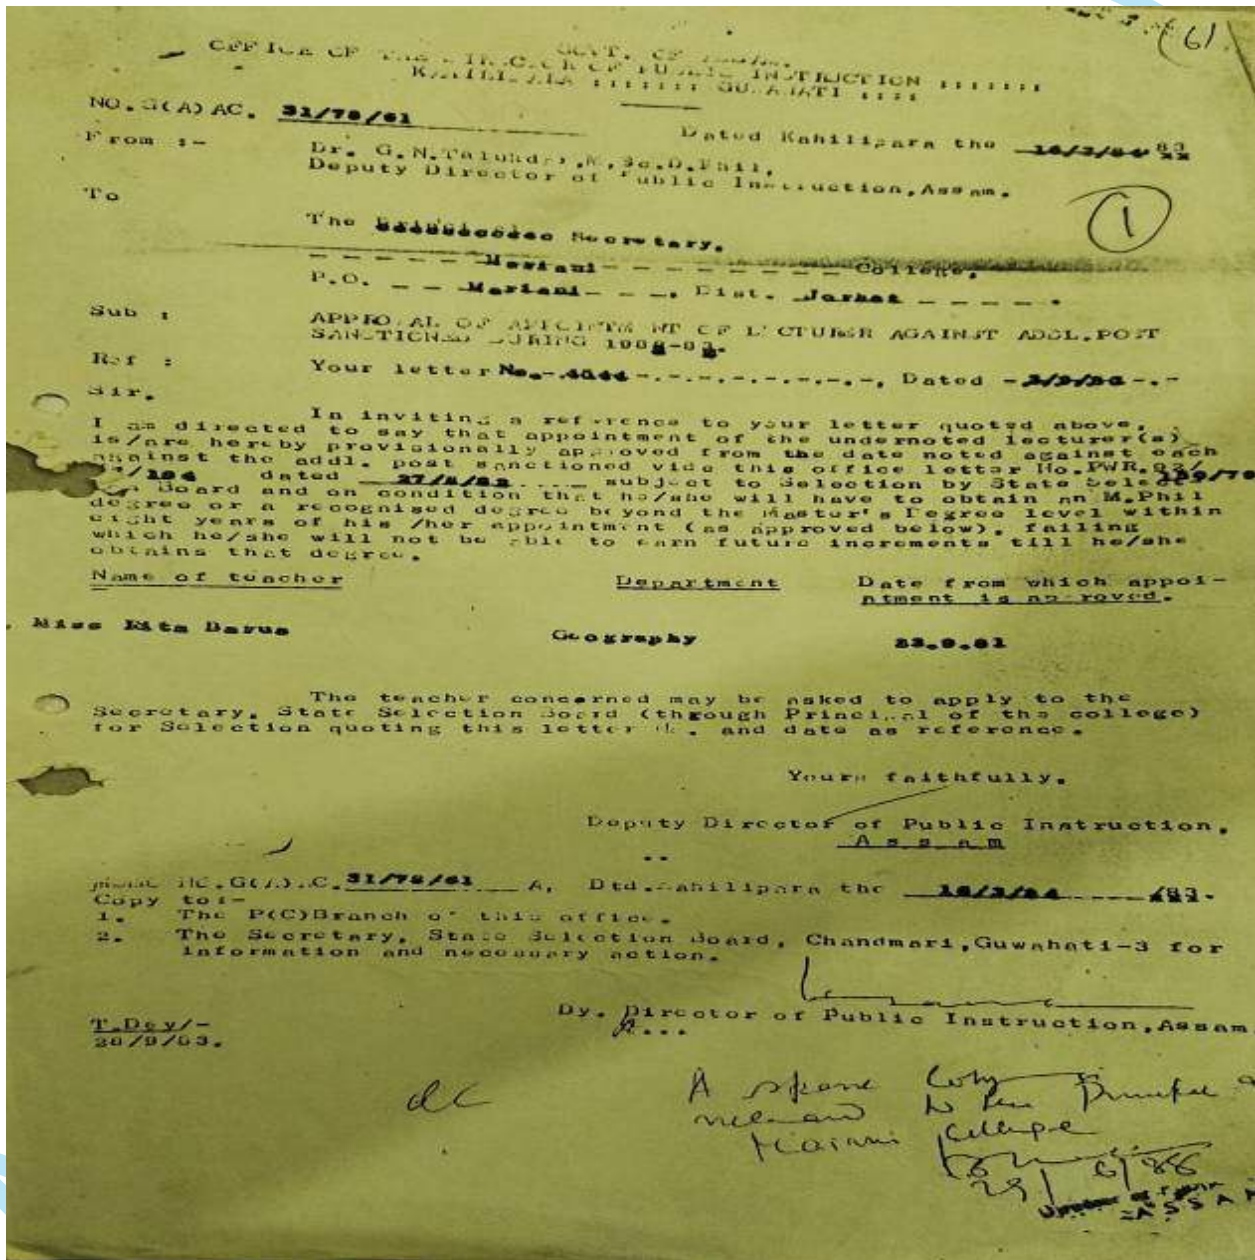 (61
GOVT. OF ASSAM.
OFFICE OF THE DIRECTOR OF PUBLIC INSTRUCTION :::::::
KAHILIPARA ::::::: GUWAHATI ::::
NO.G(A)AC. 31/78/61 Dated Kahilipara the 83
From :- Dr. G.N.Talukdar,M.Sc.D.Phil,
Deputy Director of Public Instruction,Assam.
To
1
The Secretary,
Mariani College,
P.O. Mariani Dist. Jorhat
Sub : APPROVAL OF APPOINTMENT OF LECTURER AGAINST ADDL.POST
SANCTIONED DURING
Ref : Your letter No. Dated
Sir,
In inviting a reference to your letter quoted above,
I am directed to say that appointment of the undernoted lecturer(s)
is/are hereby provisionally approved from the date noted against each
against the addl. post sanctioned vide this office letter No.PWR.
dated subject to Selection by State
Board and on condition that he/she will have to obtain an M.Phil
degree or a recognised degree beyond the Master's Degree level within
eight years of his /her appointment (as approved below), failing
which he/she will not be able to earn future increments till he/she
obtains that degree.
Name of teacher Department Date from which appoi-
ntment is approved.
Miss Rita Barua Geography
The teacher concerned may be asked to apply to the
Secretary, State Selection Board (through Principal of the college)
for Selection quoting this letter and date as reference.
Yours faithfully,
Deputy Director of Public Instruction,
Assam
Memo NO.G(A)AC.31/78/61 A, Dtd.Kahilipara the /83.
Copy to:-
1. The P(C)Branch of this office.
2. The Secretary, State Selection Board, Chandmari,Guwahati-3 for
information and necessary action.
Dy. Director of Public Instruction,Assam
T.Dey/-
A spare Copy
to the Principal
Mariani College
ASSAM